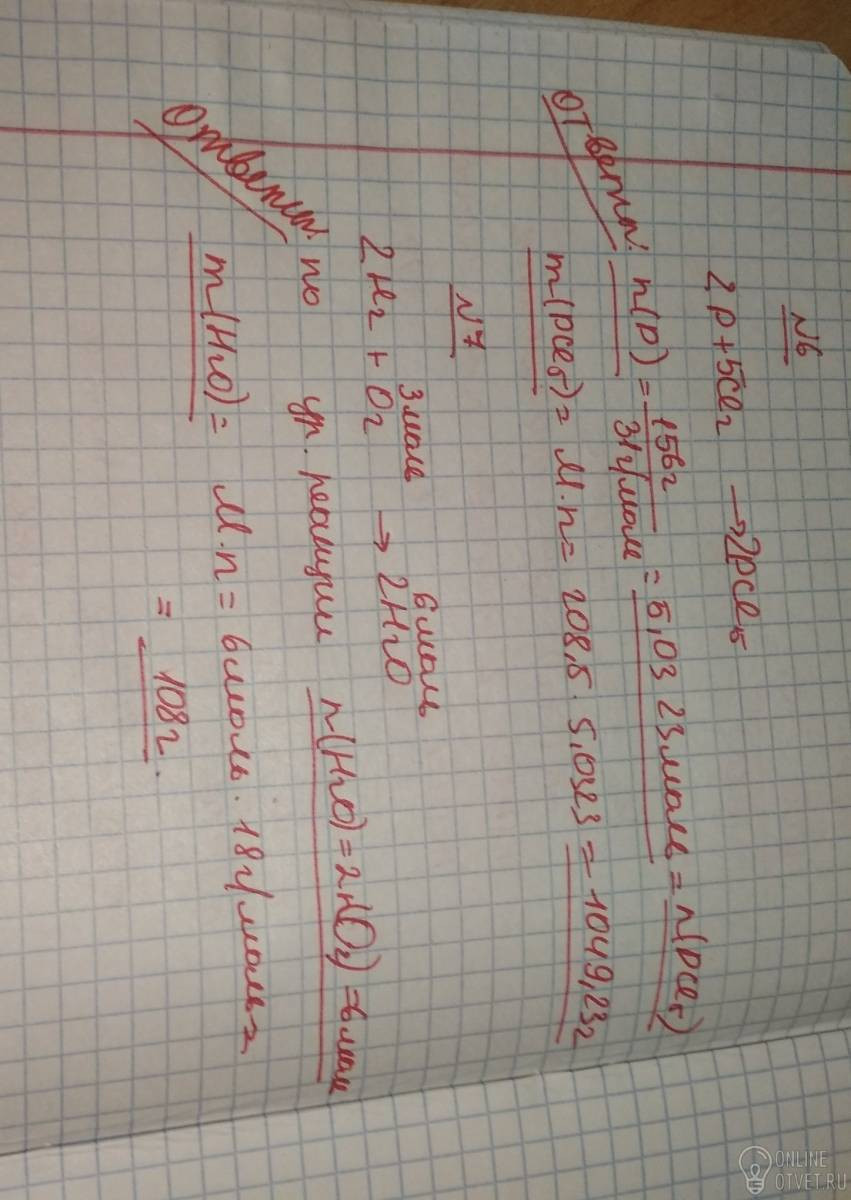 №6
2P + 5Cl₂ → 2PCl₅
Ответы: n(P) = 156г / 31г/моль = 5,0323моль = n(PCl₅)
m(PCl₅) = M·n = 208,5 · 5,0323 = 1049,23г
№7
3моль 6моль
2H₂ + O₂ → 2H₂O
Ответы: по ур. реакции n(H₂O) = 2n(O₂) = 6моль
m(H₂O) = M·n = 6моль · 18г/моль =
= 108г
ONLINE
OTVET.RU